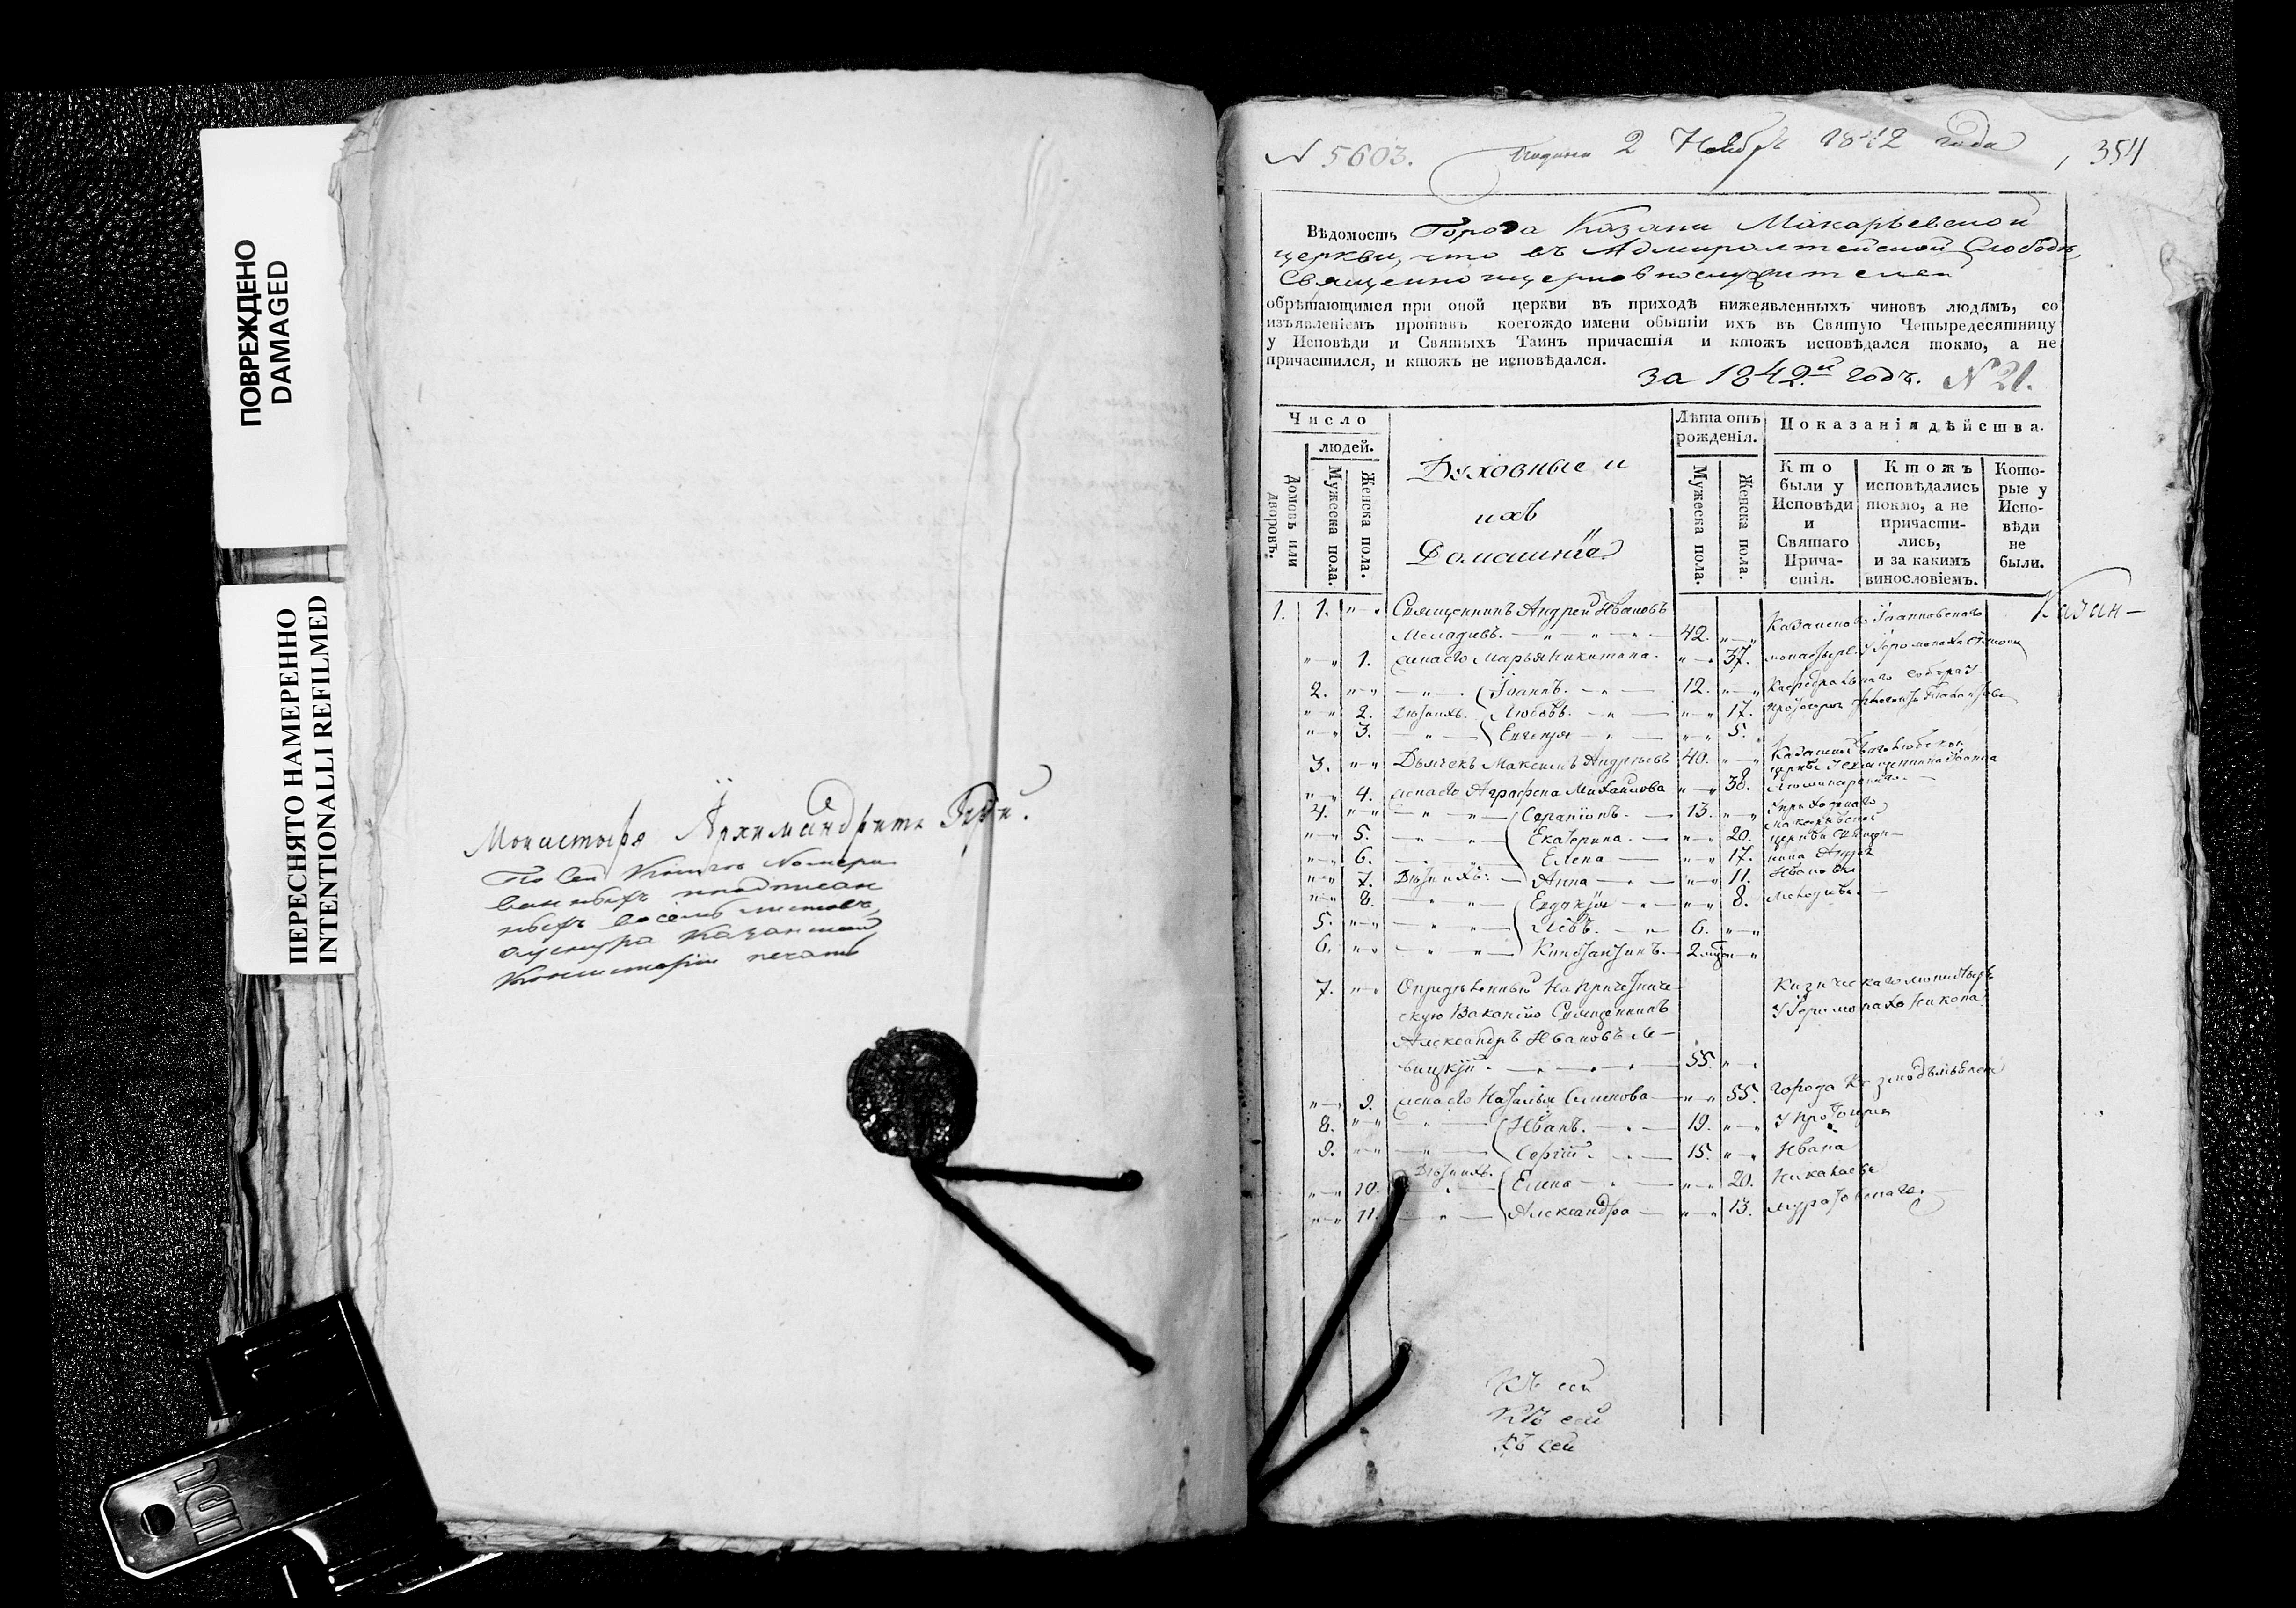 ПОВРЕЖДЕНО
DAMAGED
ПЕРЕСНЯТО НАМЕРЕННО
INTENTIONALLI REFILMED
Монастыря Архимандритъ
По сей Книгѣ Номеро-
ванныхъ
восемь листовъ,
Казанской
Консисторіи печать
N 5603. 2 Ноября 1842 года 354
Вѣдомость Города Казани Макарьевской
церкви, что въ Адмиралтейской Слободѣ,
Священноицерковнослужителей
обрѣтающимся при оной церкви въ приходѣ нижеявленныхъ чиновъ людямъ, со
изъявленіемъ противъ коегождо имени обытіи ихъ въ Святую Четыредесятницу
у Исповѣди и Святыхъ Таинъ причастія и ктожъ исповѣдался токмо, а не
причастился, и ктожъ не исповѣдался.
за 1842й годъ. N 21.
Число
людей.
Домовъ или дворовъ.
Мужеска пола.
Женска пола.
Духовные и
ихъ
Домашніе
Лѣта отъ
рожденія.
Мужеска пола.
Женска пола.
Показанія дѣйства.
Кто
были у
Исповѣди
и
Святаго
Прича-
стія.
Ктожъ
исповѣдались
токмо, а не
причасти-
лись,
и за какимъ
винословіемъ.
Кото-
рые у
Испо-
вѣди
не
были.
1. 1. Священникъ Андрей Ивановъ Казанскаго Іоанновскаго Казан-
42.
1. жена его Марья Никитина. 37. монастыря У Іеромонаха
2. Іоаннъ. 12. Каѳедральнаго собора У
2. Дѣти ихъ. Любовь. 17. Протоіерея
3. Евгенія 5.
3. Дьячекъ Максимъ Андреевъ 40. церкви У священника Іоанна
4. жена его Аграфена Михайлова 38.
4. Серапіонъ. 13. У приходскаго
5. Екатерина. 20. Макарьевской церкви
6. Елена 17. Андрея
7. Дѣти ихъ: Анна 11. Иванова
8. Евдокія 8.
5. Левъ. 6.
6. Константинъ. 2
7. Опредѣленный на Причетниче- Кизическаго монастыря
скую Ваканцію Священникъ У Іеромонаха Никона
Александръ Ивановъ Ле-
вицкій. 55.
9. жена его Наталья Семенова 55. города Козмодемьянска
8. Иванъ. 19. У Протоіерея
9. Сергій. 15. Ивана
10. Дѣти ихъ. Елена 20. Николаева
11. Александра 13.
Къ сей
Къ сей
Къ сей